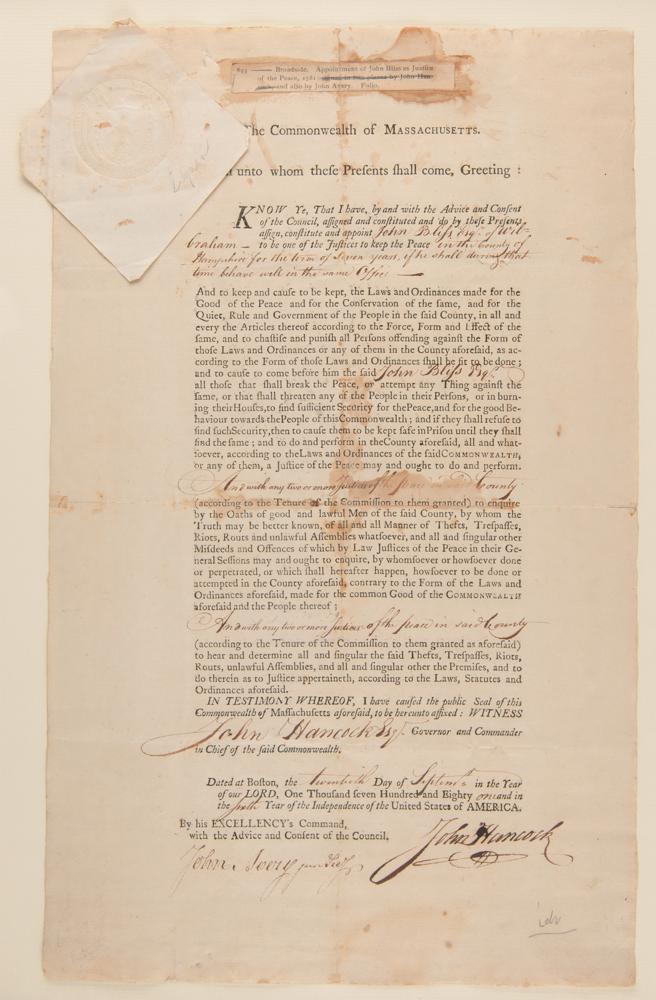 833 —— Broadside. Appointment of John Bliss as Justice
of the Peace, 1781 signed in two places by John Han-
cock, and also by John Avery. Folio.
The Commonwealth of MASSACHUSETTS.
unto whom theſe Preſents ſhall come, Greeting :
KNOW Ye, That I have, by and with the Advice and Conſent
of the Council, aſſigned and conſtituted and do by theſe Preſents,
aſſign, conſtitute and appoint John Bliſs Esqr. of Wil-
braham — to be one of the Juſtices to keep the Peace in the County of
Hampshire for the term of Seven years, if he shall during that
time behave well in the same Office —
And to keep and cauſe to be kept, the Laws and Ordinances made for the
Good of the Peace and for the Conſervation of the ſame, and for the
Quiet, Rule and Government of the People in the ſaid County, in all and
every the Articles thereof according to the Force, Form and Effect of the
ſame, and to chaſtiſe and puniſh all Perſons offending againſt the Form of
thoſe Laws and Ordinances or any of them in the County aforeſaid, as ac-
cording to the Form of thoſe Laws and Ordinances ſhall be fit to be done ;
and to cauſe to come before him the ſaid John Bliſs Esqr.
all thoſe that ſhall break the Peace, or attempt any Thing againſt the
ſame, or that ſhall threaten any of the People in their Perſons, or in burn-
ing their Houſes, to find ſufficient Security for the Peace, and for the good Be-
haviour towards the People of this Commonwealth ; and if they ſhall refuſe to
find ſuch Security, then to cauſe them to be kept ſafe in Priſon until they ſhall
find the ſame ; and to do and perform in the County aforeſaid, all and what-
ſoever, according to the Laws and Ordinances of the ſaid COMMONWEALTH,
or any of them, a Juſtice of the Peace may and ought to do and perform.
And with any two or more Justices of the peace in said County
(according to the Tenure of the Commiſſion to them granted) to enquire
by the Oaths of good and lawful Men of the ſaid County, by whom the
Truth may be better known, of all and all Manner of Thefts, Treſpaſſes,
Riots, Routs and unlawful Aſſemblies whatſoever, and all and ſingular other
Miſdeeds and Offences of which by Law Juſtices of the Peace in their Ge-
neral Seſſions may and ought to enquire, by whomſoever or howſoever done
or perpetrated, or which ſhall hereafter happen, howſoever to be done or
attempted in the County aforeſaid, contrary to the Form of the Laws and
Ordinances aforeſaid, made for the common Good of the COMMONWEALTH
aforeſaid and the People thereof ;
And with any two or more Justices of the peace in said County
(according to the Tenure of the Commiſſion to them granted as aforeſaid)
to hear and determine all and ſingular the ſaid Thefts, Treſpaſſes, Riots,
Routs, unlawful Aſſemblies, and all and ſingular other the Premiſes, and to
do therein as to Juſtice appertaineth, according to the Laws, Statutes and
Ordinances aforeſaid.
IN TESTIMONY WHEREOF, I have cauſed the public Seal of this
Commonwealth of Maſſachuſetts aforeſaid, to be hereunto affixed : WITNESS
John Hancock Esqr. Governor and Commander
in Chief of the ſaid Commonwealth.
Dated at Boſton, the twentieth Day of Septemr. in the Year
of our LORD, One Thouſand ſeven Hundred and Eighty one and in
the sixth Year of the Independence of the United States of AMERICA.
By his EXCELLENCY's Command,
with the Advice and Conſent of the Council,
John Hancock
John Avery